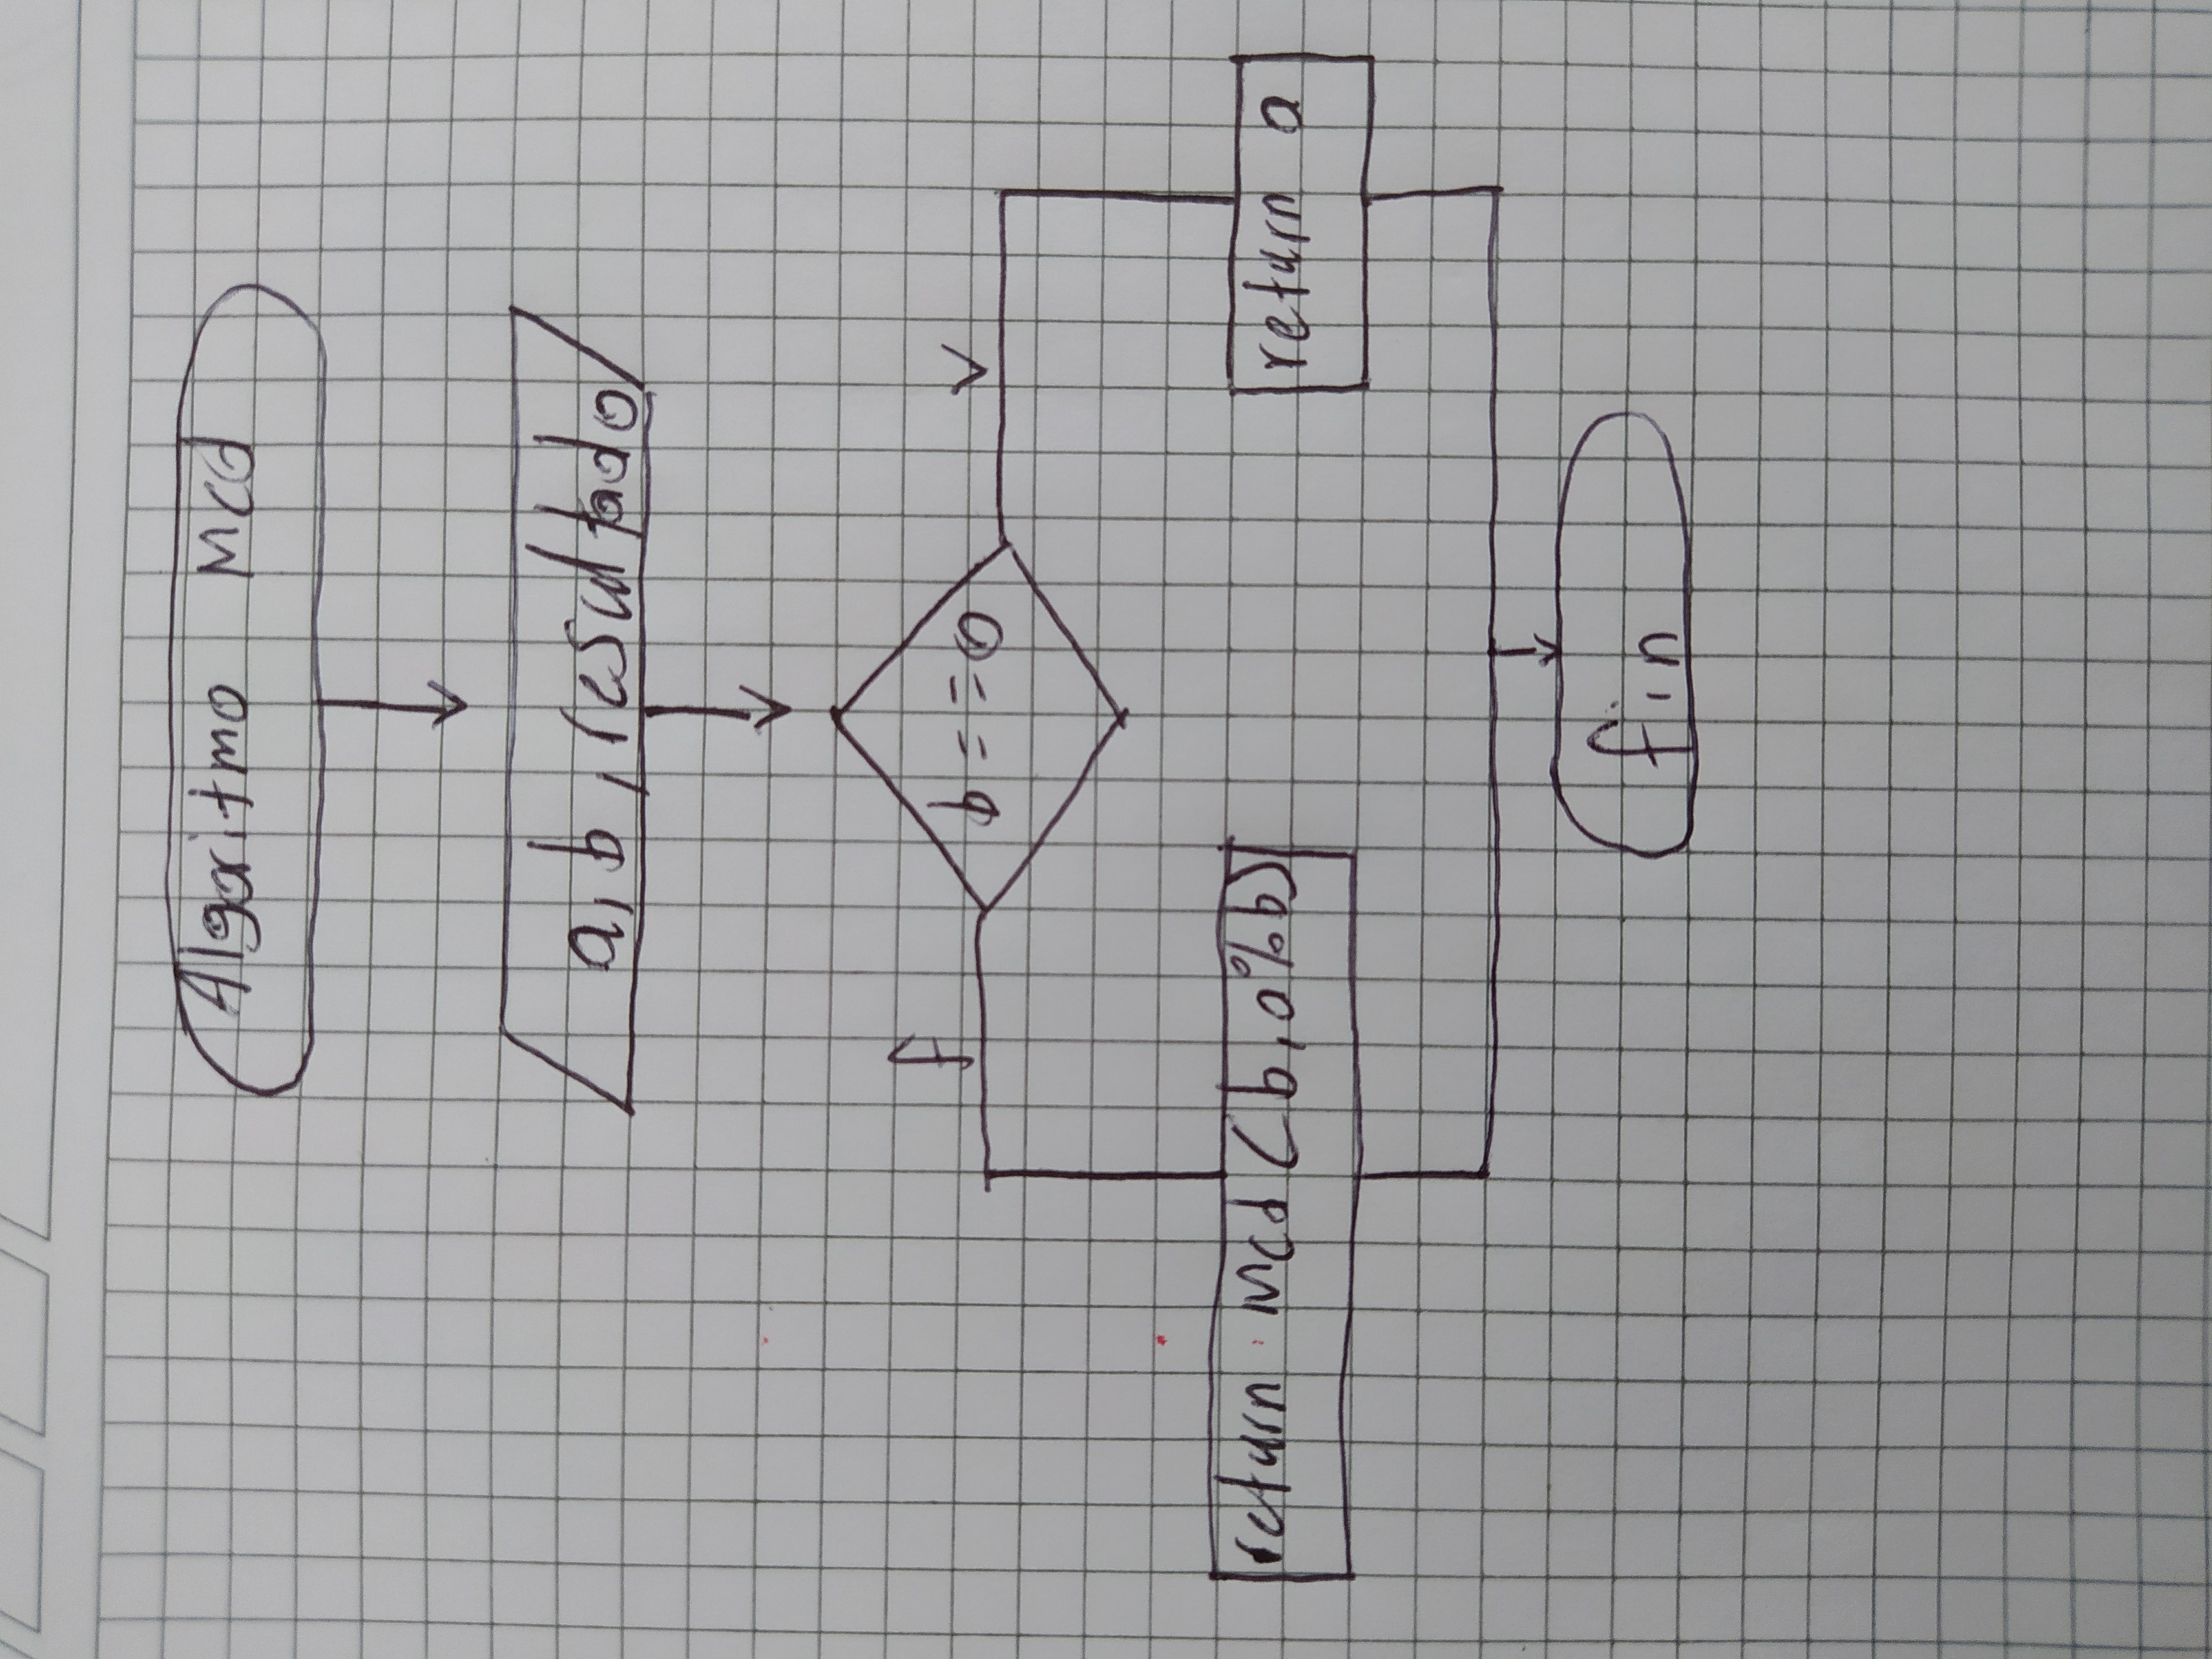 Algoritmo Mcd
a, b, resultado
b==0
f
v
return Mcd (b, a%b)
return a
fin